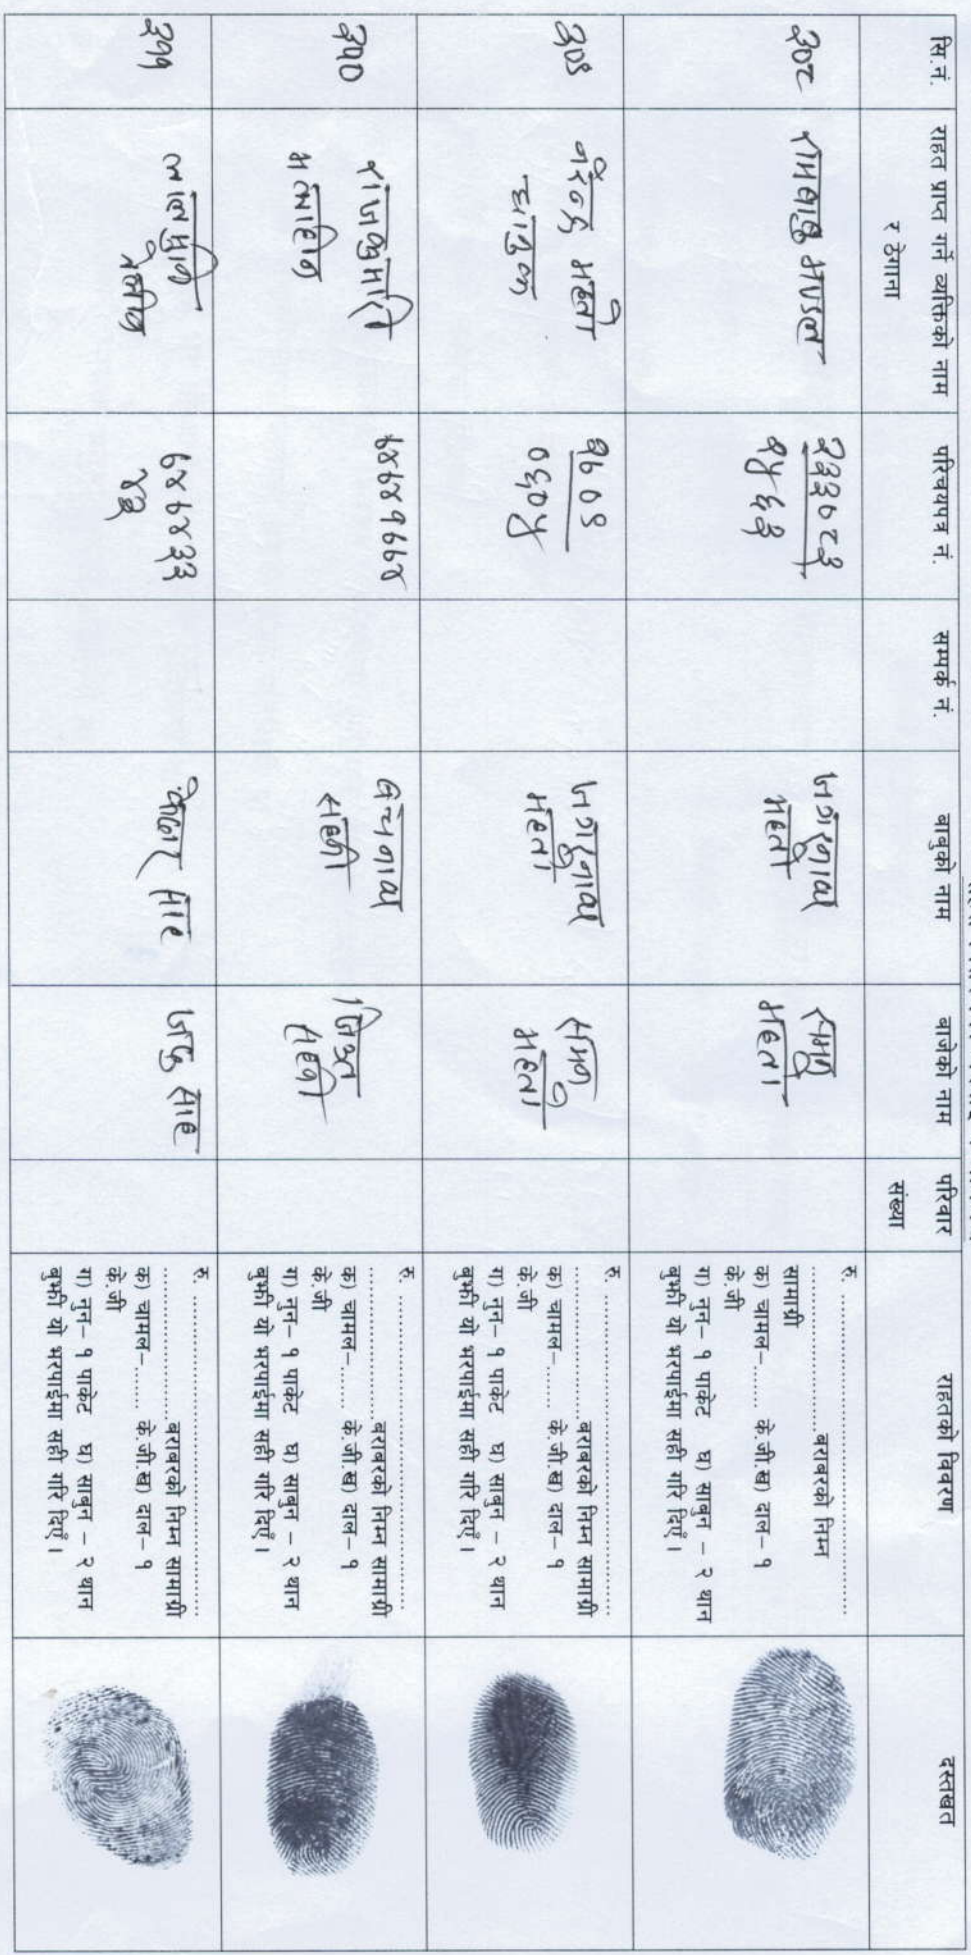 सि.नं.
राहत प्राप्त गर्ने व्यक्तिको नाम
र ठेगाना
परिचयपत्र नं.
सम्पर्क नं.
बाबुको नाम
बाजेको नाम
परिवार
संख्या
राहतको विवरण
दस्तखत
३०८
रामबाबु मण्डल
२३३२०८३
१५६३
जगरनाथ
महतो
महतो
रु. ..............................
.................बराबरको निम्न
सामाग्री
क) चामल-..... के.जी.ख) दाल-१
के.जी
ग) नुन-१ पाकेट घ) साबुन - २ थान
बुझी यो भरपाईमा सही गरि दिएँ ।
३०९
नरेन्द्र महतो
१७०९
०६०५
जगरनाथ
महतो
महतो
रु. ..............................
.................बराबरको निम्न सामाग्री
क) चामल-..... के.जी.ख) दाल-१
के.जी
ग) नुन-१ पाकेट घ) साबुन - २ थान
बुझी यो भरपाईमा सही गरि दिएँ ।
३१०
राजकुमारी
सहनी
सहनी
रु. ..............................
.................बराबरको निम्न सामाग्री
क) चामल-..... के.जी.ख) दाल-१
के.जी
ग) नुन-१ पाकेट घ) साबुन - २ थान
बुझी यो भरपाईमा सही गरि दिएँ ।
३११
साह
साह
रु. ..............................
.................बराबरको निम्न सामाग्री
क) चामल-..... के.जी.ख) दाल-१
के.जी
ग) नुन-१ पाकेट घ) साबुन - २ थान
बुझी यो भरपाईमा सही गरि दिएँ ।